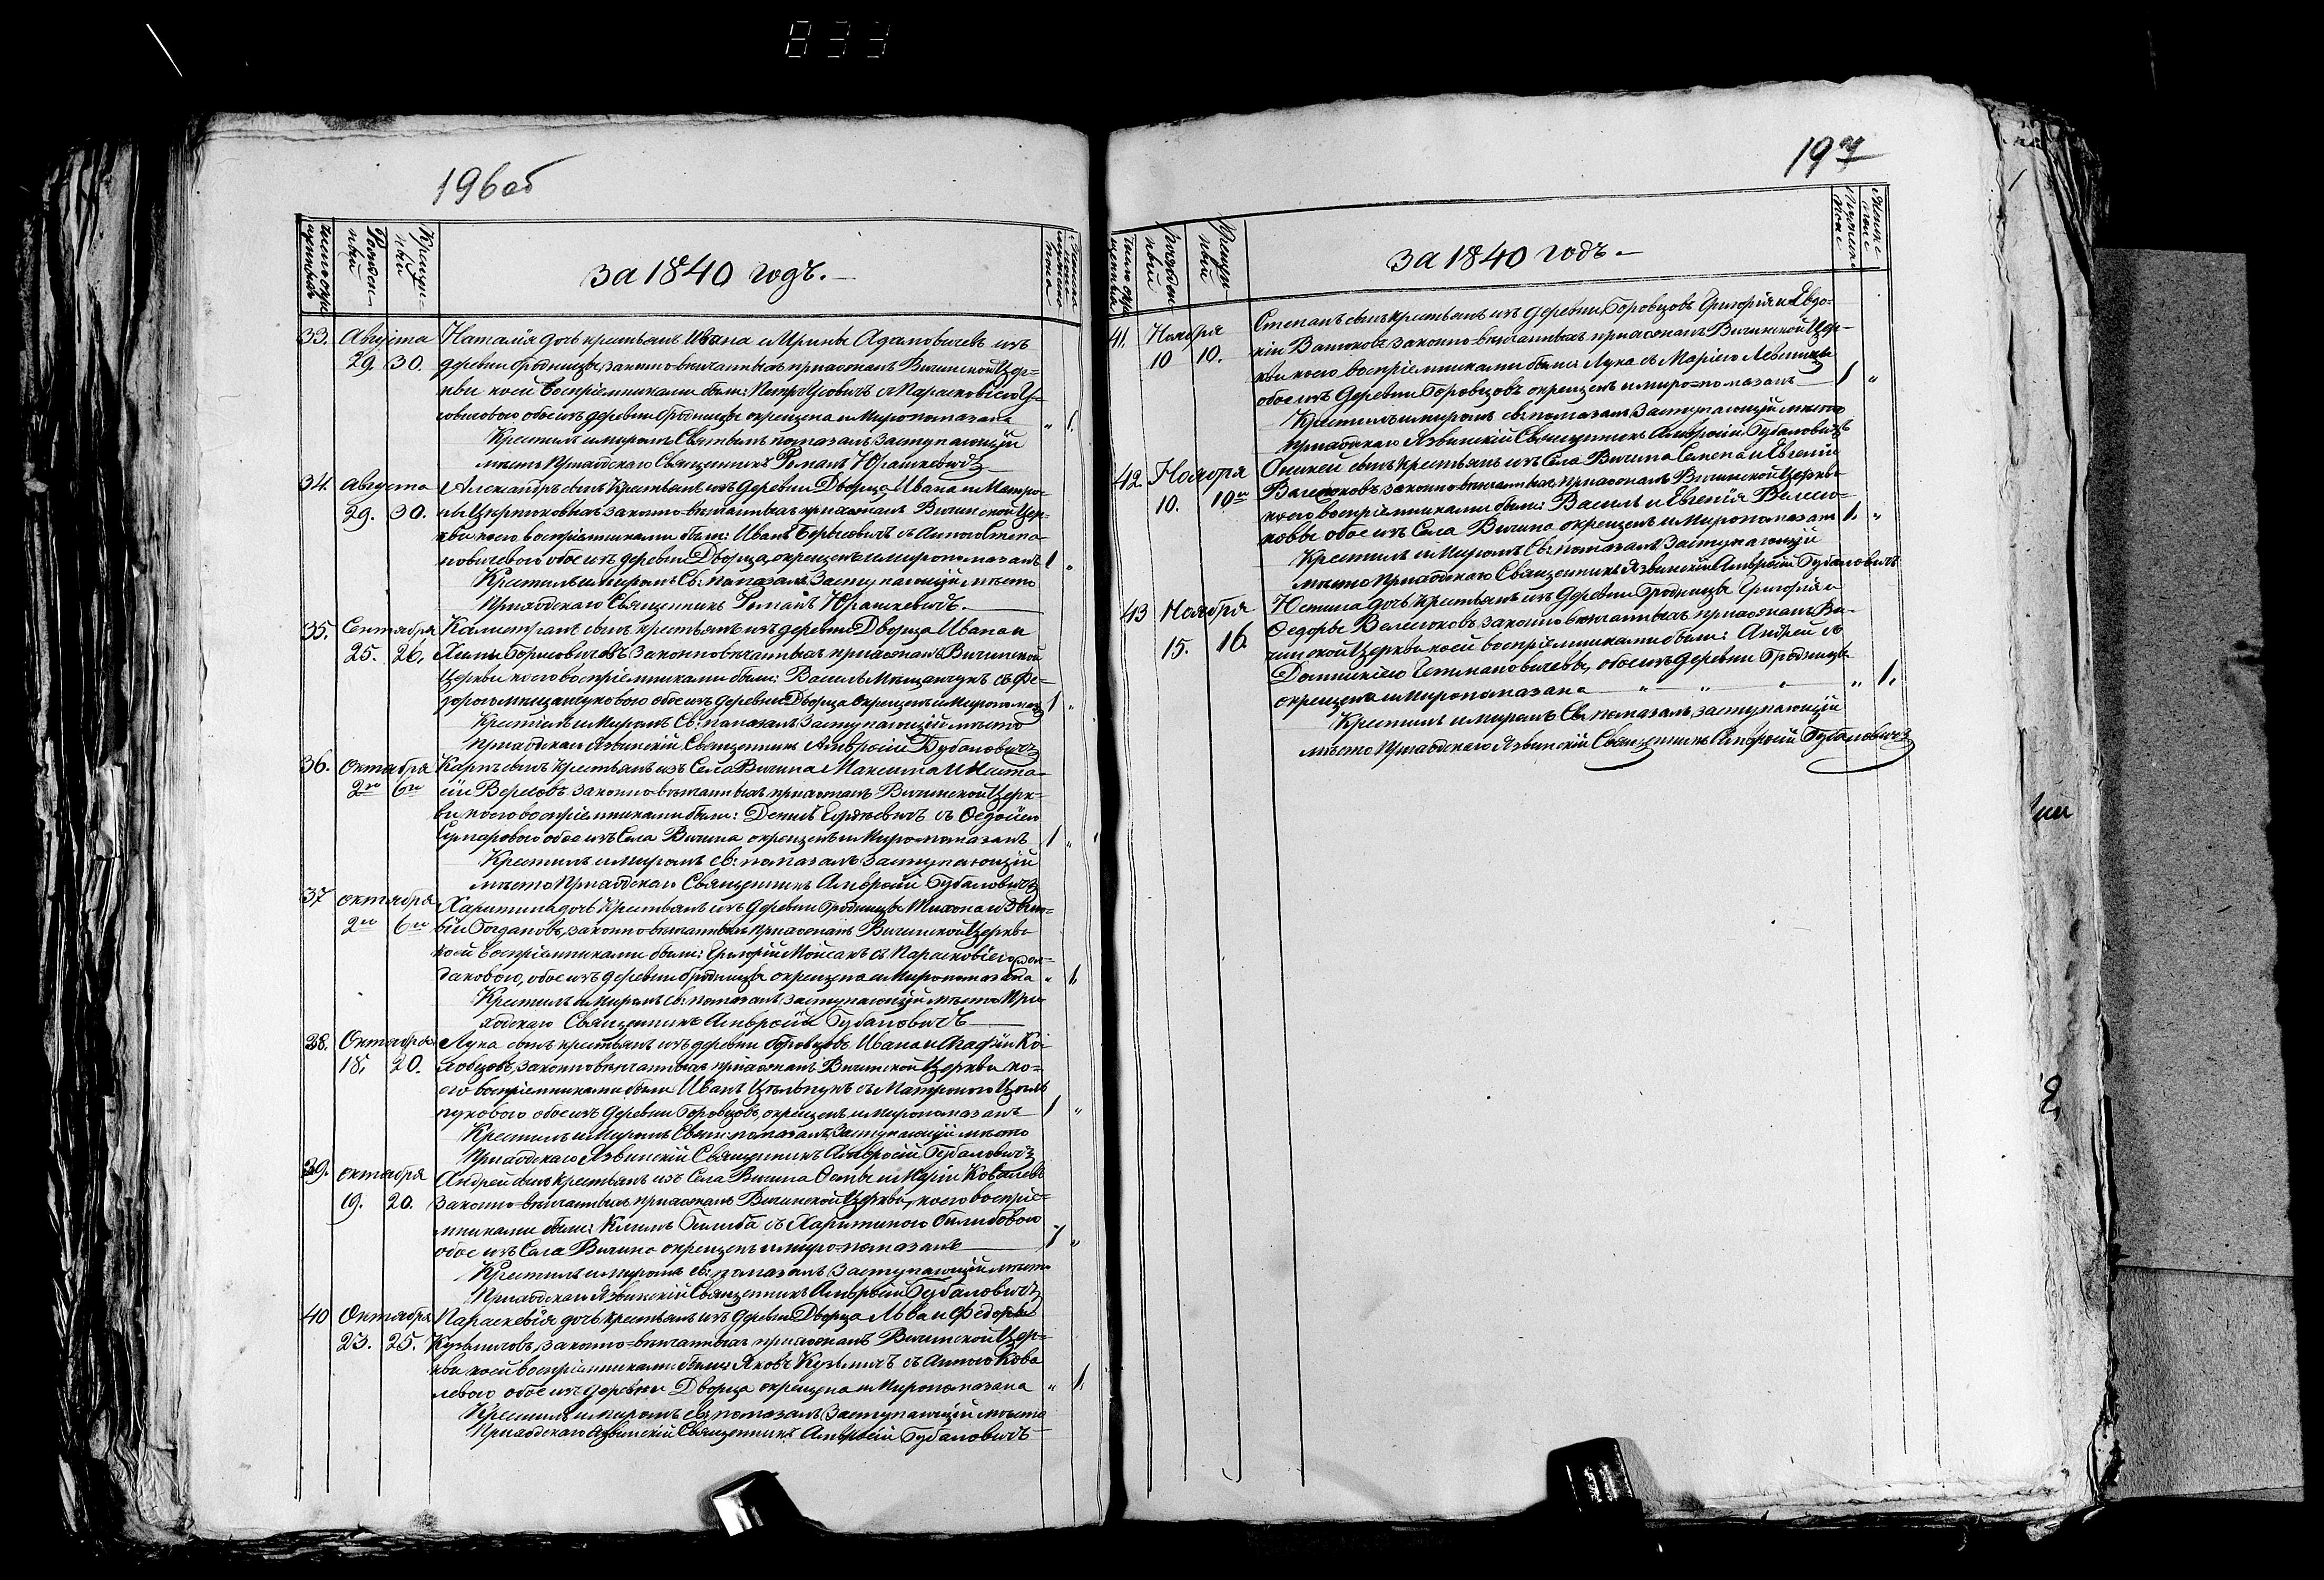 833
196 об
число окре
Рожден-
ный
Креще-
ный
за 1840 годъ.—
33. Августа Наталія дочь крестьянъ Ивана и Ирины Адамовичевъ изъ
29. 30. деревни Гродницы законно-вѣнчанныхъ прихожанъ Вичинской Цер-
кви коей воспріемниками были: Петръ Усовичъ с Парасковіею У-
совичовою обое изъ деревни Гродницы окрещена и Миропомазана " 1.
Крестилъ и миромъ Святымъ помазалъ Заступающій
мѣсто Приходскаго Священникъ Романъ Юрашкевичъ
34. Августа Александръ сынъ Крестьянъ изъ деревни Дворца Ивана и Матро-
29. 30. ны законно-вѣнчанныхъ прихожанъ Вичинской Цер-
кви коего воспріемниками были: Иванъ Борисовичъ съ Анною Степа-
новичевою обое изъ деревни Дворца, окрещенъ и миропомазанъ 1 "
Крестилъ и миромъ Св: помазалъ Заступающій мѣсто
Приходскаго Священникъ Романъ Юрашкевичъ.
35. Сентября Калистратъ сынъ крестьянъ изъ деревни Дворца Ивана и
25. 26. Борисовичевъ законновѣнчанныхъ прихожанъ Вичинской
Церкви коего воспріемниками были: Василь Мѣщанчукъ съ Фе-
дорою Мищанчуковою обое изъ деревни Дворца окрещенъ и Миропомаз 1 "
Крестилъ и Миромъ Св: помазалъ Заступающій мѣсто
Приходскаго Язвинскій Священникъ Амвросій Бубановичъ
36. Октября Карпъ сынъ крестьянъ изъ Села Вичина Максима и Наста-
2го 6го сіи законно-вѣнчанныхъ прихожанъ Вичинской Церк-
ви коего воспріемниками были: Денисъ съ Ѳедосіею
обое изъ Села Вичина окрещенъ и Миро-помазанъ 1 "
Крестилъ и миромъ св: помазалъ Заступающій
мѣсто Приходскаго Священникъ Амвросій Бубановичъ
37 октября Харитина дочь Крестьянъ изъ деревни Гродницы Тихона и
2го 6го Богдановъ, законно-вѣнчанныхъ прихожанъ Вичинской Церкви
коей воспріемниками были: Григорій Мойсакъ съ Парасковіею
обое изъ деревни Гродницы окрещена и Миропомазана " 1.
Крестилъ и Миромъ св: помазалъ заступающій мѣсто При-
ходскаго Священникъ Амвросій Бубановичъ
38. Октября Лука сынъ крестьянъ изъ деревни Боровцовъ Ивана и Агафіи Ко-
18. 20. законновѣнчанныхъ прихожанъ Вичинской Церкви ко-
его воспріемниками были Иванъ съ Матроною
обое изъ деревни Боровцовъ, окрещенъ и миропомазанъ 1 "
Крестилъ и Миромъ Свят: помазалъ, Заступающій мѣсто
Приходскаго Язвинскій Священникъ Амвросій Бубановичъ
39. октября Андрей сынъ крестьянъ изъ Села Вичина и Маріи Ковалевъ
19. 20. законно-вѣнчанныхъ прихожанъ Вичинской Церкви, коего воспріе-
мниками были: Климъ съ Харитиною
обое изъ Села Вичина окрещенъ и миро-помазанъ 1 "
Крестилъ и миромъ св: помазалъ Заступающій мѣсто
Приходскаго Язвинскій Священникъ Амвросій Бубановичъ
40 Октября Параскевія дочь крестьянъ изъ деревни Дворца Льва и Федоры
23. 25. Кузьмичовъ, законно-вѣнчанныхъ прихожанъ Вичинской Цер-
кви коей воспріемниками были Яковъ Кузьмичъ съ Анною Кова
левою обое изъ деревни Дворца окрещена и Миропомазана " 1.
Крестилъ и миромъ св: помазалъ Заступающій мѣсто
Приходскаго Язвинскій Священникъ Амвросій Бубановичъ
197
Рожден
ный
Креще-
ный
за 1840 годъ.—
41. Ноября Степанъ сынъ крестьянъ изъ деревни Боровцовъ Григорія и Евдо-
10 10. кіи законно-вѣнчанныхъ прихожанъ Вичинской Цер-
кви коего воспріемниками были Лука съ Маріею
обое изъ деревни Боровцовъ окрещенъ и миро-помазанъ 1 "
Крестилъ и миромъ св: помазалъ Заступающій мѣсто
Приходскаго Язвинскій Священникъ Амвросій Бубановичъ
42. Ноября сынъ Крестьянъ изъ Села Вичина Семена и Евгеніи
10. 10го законно-вѣнчанныхъ прихожанъ Вичинской Церкви
коего воспріемниками были: Василь и Евгенія
обое изъ Села Вичина окрещенъ и Миропомазанъ 1. "
Крестилъ и Миромъ Св: помазалъ Заступающій
мѣсто Приходскаго Священникъ Язвинскій Амвросій Бубановичъ
43 Ноября Юстина дочь Крестьянъ изъ деревни Гродницы Григорія и
15. 16. Ѳедоры законно-вѣнчанныхъ прихожанъ Ви-
чинской Церкви коей воспріемниками были: Андрей съ
обое изъ деревни Гродницы
окрещена и Миропомазана " " " " 1.
Крестилъ и миромъ Св: помазалъ заступающій
мѣсто Приходскаго Язвинскій Священникъ Амвросій Бубановичъ